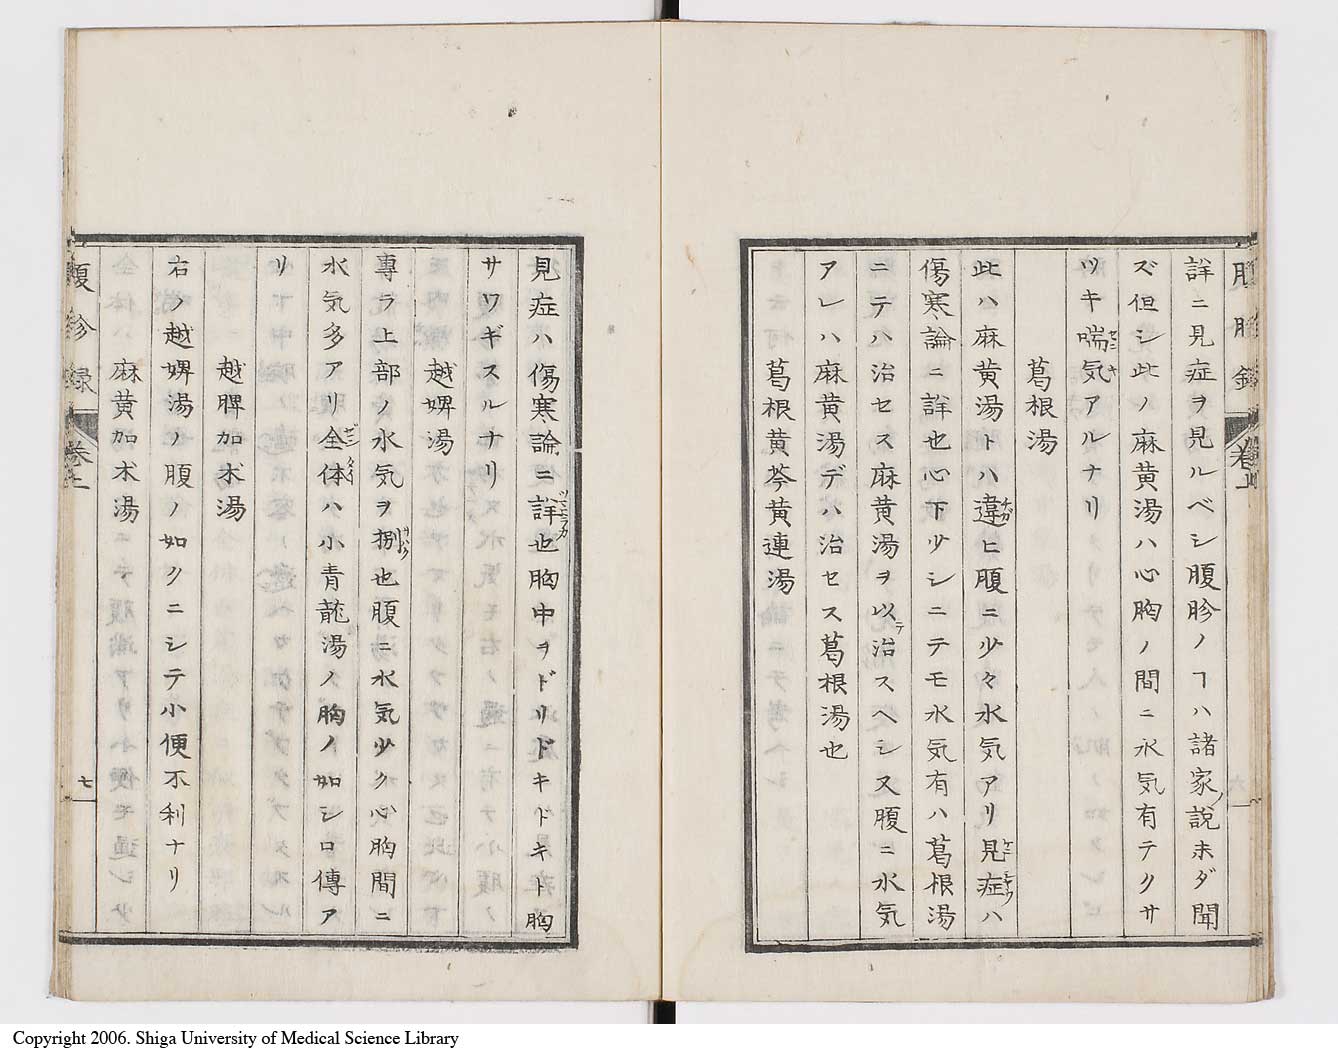 詳ニ見症ヲ見ルベシ腹胗ノヿハ諸家ノ説未ダ聞
ズ但シ此ノ麻黄湯ハ心胸ノ間ニ水気有テクサ
ツキ喘気アルナリ
葛根湯
此ハ麻黄湯トハ違ヒ腹ニ少々水気アリ見症ハ
傷寒論ニ詳也心下少シニテモ水気有ハ葛根湯
ニテハ治セス麻黄湯ヲ以テ治スヘシ又腹ニ水気
アレハ麻黄湯デハ治セス葛根湯也
葛根黄芩黄連湯
見症ハ傷寒論ニ詳也胸中ヲドリドキトキト胸
サワギスルナリ
越婢湯
専ラ上部ノ水気ヲ捌也腹ニ水気少ク心胸間ニ
水気多アリ全体ハ小青龍湯ノ胸ノ如シロ傳ア
リ
越脾加朮湯
右ノ越婢湯ノ腹ノ如クニシテ小便不利ナリ
麻黄加朮湯
腹診録
卷上
七
Copyright 2006. Shiga University of Medical Science Library